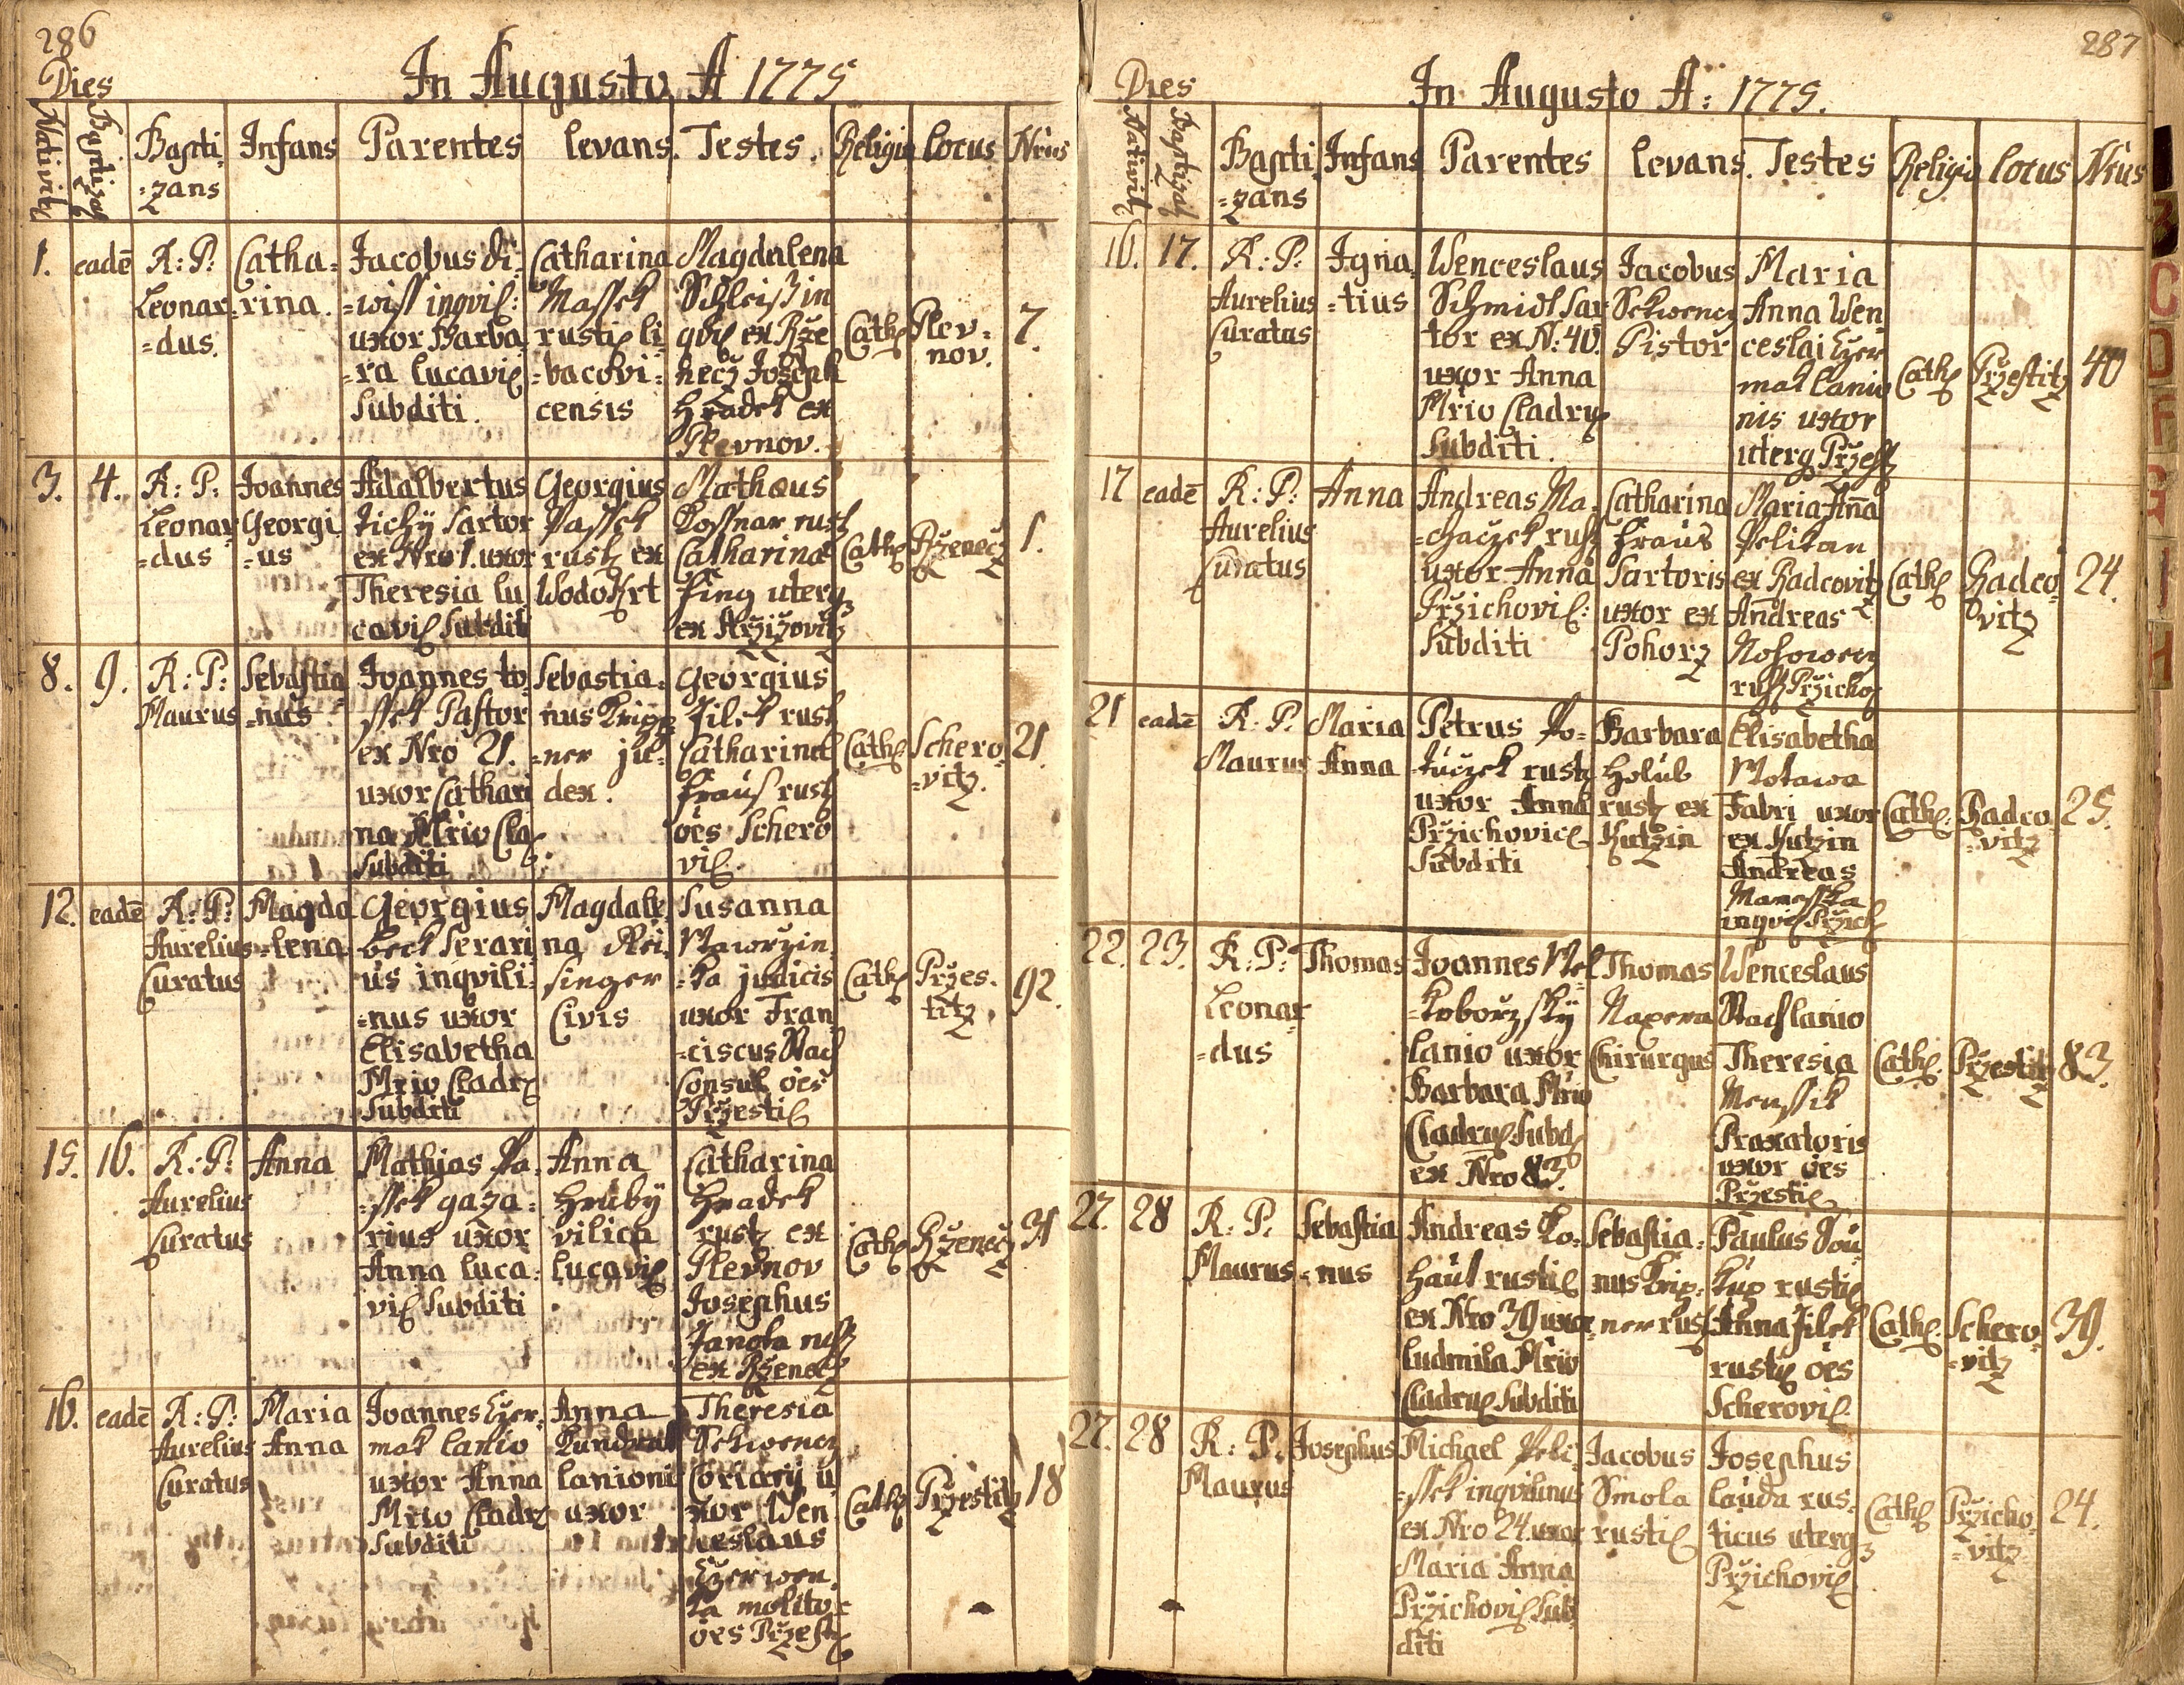 286
Dies
In Augusto A 1775
Nativit
Baptizat
Bapti
=zans
Infans
Parentes
levans.
Testes.
Religio
locus
Nrus
1.
eadē
R: P:
Leonar
=dus.
Catha=
rina.
Jacobus
ingvil:
uxor Barba
=ra lucavic
Subditi.
Catharina
Massek
rustic li
=bacovi=
censis
Magdalena
Schleiß in
qvil ex Rže
necz Joseph
Hradek ex
Plevnov.
Cath
Plev=
nov.
7.
3.
4.
R: P:
Leonar
=dus
Joannes
Georgi
=us
Adalbertus
Tichÿ Sartor
ex Nro 1. uxor
Theresia lu
cavic Subdit
Georgius
Passek
rust ex
Wodokrt
Mathæus
Kossnar rust
Catharina
uterq
ex
Cath
Rženecz
1.
8.
9.
R: P:
Maurus
Sebastia
=nus
Joannes to
ssek Pastor
ex Nro 21.
uxor Cathari
na Mrio Cla
Subditi
Sebastia=
nus Kripp
=ner ju=
dex.
Georgius
Jilek rust
Catharina
Kraus rust
oēs Schero
vic
Cath
Schero=
=vitz.
21.
12.
eadē
R: P:
Aurelius
Curatus
Magda
=lena
Georgius
beck Serari
us inqvili=
=nus uxor
Elisabetha
Mrio Cladr
Subditi
Magdale
na Rei=
singer
Civis
Susanna
Wawrzin
=ka judicis
uxor Fran
=ciscus
Consul oēs
Pržestic
Cath
Pržes=
titz
92.
15.
16.
R: P:
Aurelius
Curatus
Anna
Mathias Pa=
=ssek gaza=
rius uxor
Anna luca=
vic Subditi
Anna
Hrubÿ
vilica
lucavic
Catharina
Hradek
rust ex
Plevnov
Josephus
Janota rust
ex Rženecz
Cath
Rženecz
31
16.
eadē
R: P:
Aurelius
Curatus
Maria
Anna
Joannes Czer=
mak lanio
uxor Anna
Mrio Cladr
Subditi
Anna
Kundrat
lanioni
uxor
Theresia
Sekwencz
Coriarij u
xor Wen
ceslaus
Czerwen=
ka molitor
oēs Pržest
Cath
Pržestitz
18
287
Dies
In Augusto A: 1775.
Nativit
Baptizat
Bapti
=zans
Infans
Parentes
levans.
Testes
Religio
locus
Nrus
16.
17.
R: P:
Aurelius
Curatus
Igna
=tius
Wenceslaus
Schmidt Sar
tor ex N: 40.
uxor Anna
Mrio Cladru
Subditi.
Jacobus
Sekwencz
Pistor
Maria
Anna Wen
ceslai Czer
mak lanio
nis uxor
uterq Pržest
Cath
Pržestitz
40
17
eadē
R: P:
Aurelius
Curatus
Anna
Andreas Ma=
=chaczek rust
uxor Anna
Pržichovic:
Subditi
Catharina
Kraus
Sartoris
uxor ex
Pohorz
Maria Anna
Pelikan
ex Radcovitz
Andreas
Nosowecz
rust Pržicho
Cath
Radco
vitz
24.
21
eadē
R: P.
Maurus
Maria
Anna
Petrus Po=
=tuczek rust
uxor Anna
Pržichovic
Subditi
Barbara
Holub
rust ex
Kutzin
Elisabetha
Motawa
Fabri uxor
ex Kutzin
Andreas
inqvil Pržich
Cath:
Radco
=vitz
25.
22.
23.
R: P:
Leonar
=dus
Thomas
Joannes Wel
=koborzskÿ
lanio uxor
Barbara Mrio
Cladruc Subd
ex Nro 83.
Thomas
Naxera
Chirurgus
Wenceslaus
lanio
Theresia
Menssik
Praxatoris
uxor oēs
Pržestic
Cath
Pržestitz
83.
27.
28
R: P.
Maurus
Sebastia
=nus
Andreas Ko=
haut rustic
ex Nro 39 uxor
Ludmila Mrio
Cladruc Subditi
Sebastia=
nus Krip=
ner rust
Paulus Sou
kup rustic
Anna Jilek
rustic oēs
Scherovic
Cath
Schero=
=vitz
39.
27.
28
R: P.
Maurus
Josephus
Michael Peli=
=ssek inqvilinus
ex Nro 24. uxor
Maria Anna
Pržichovic Sub
diti
Jacobus
Smola
rustic
Josephus
lauda rus=
ticus uterq
Pržichovic
Cath
Pržicho
=vitz
24.